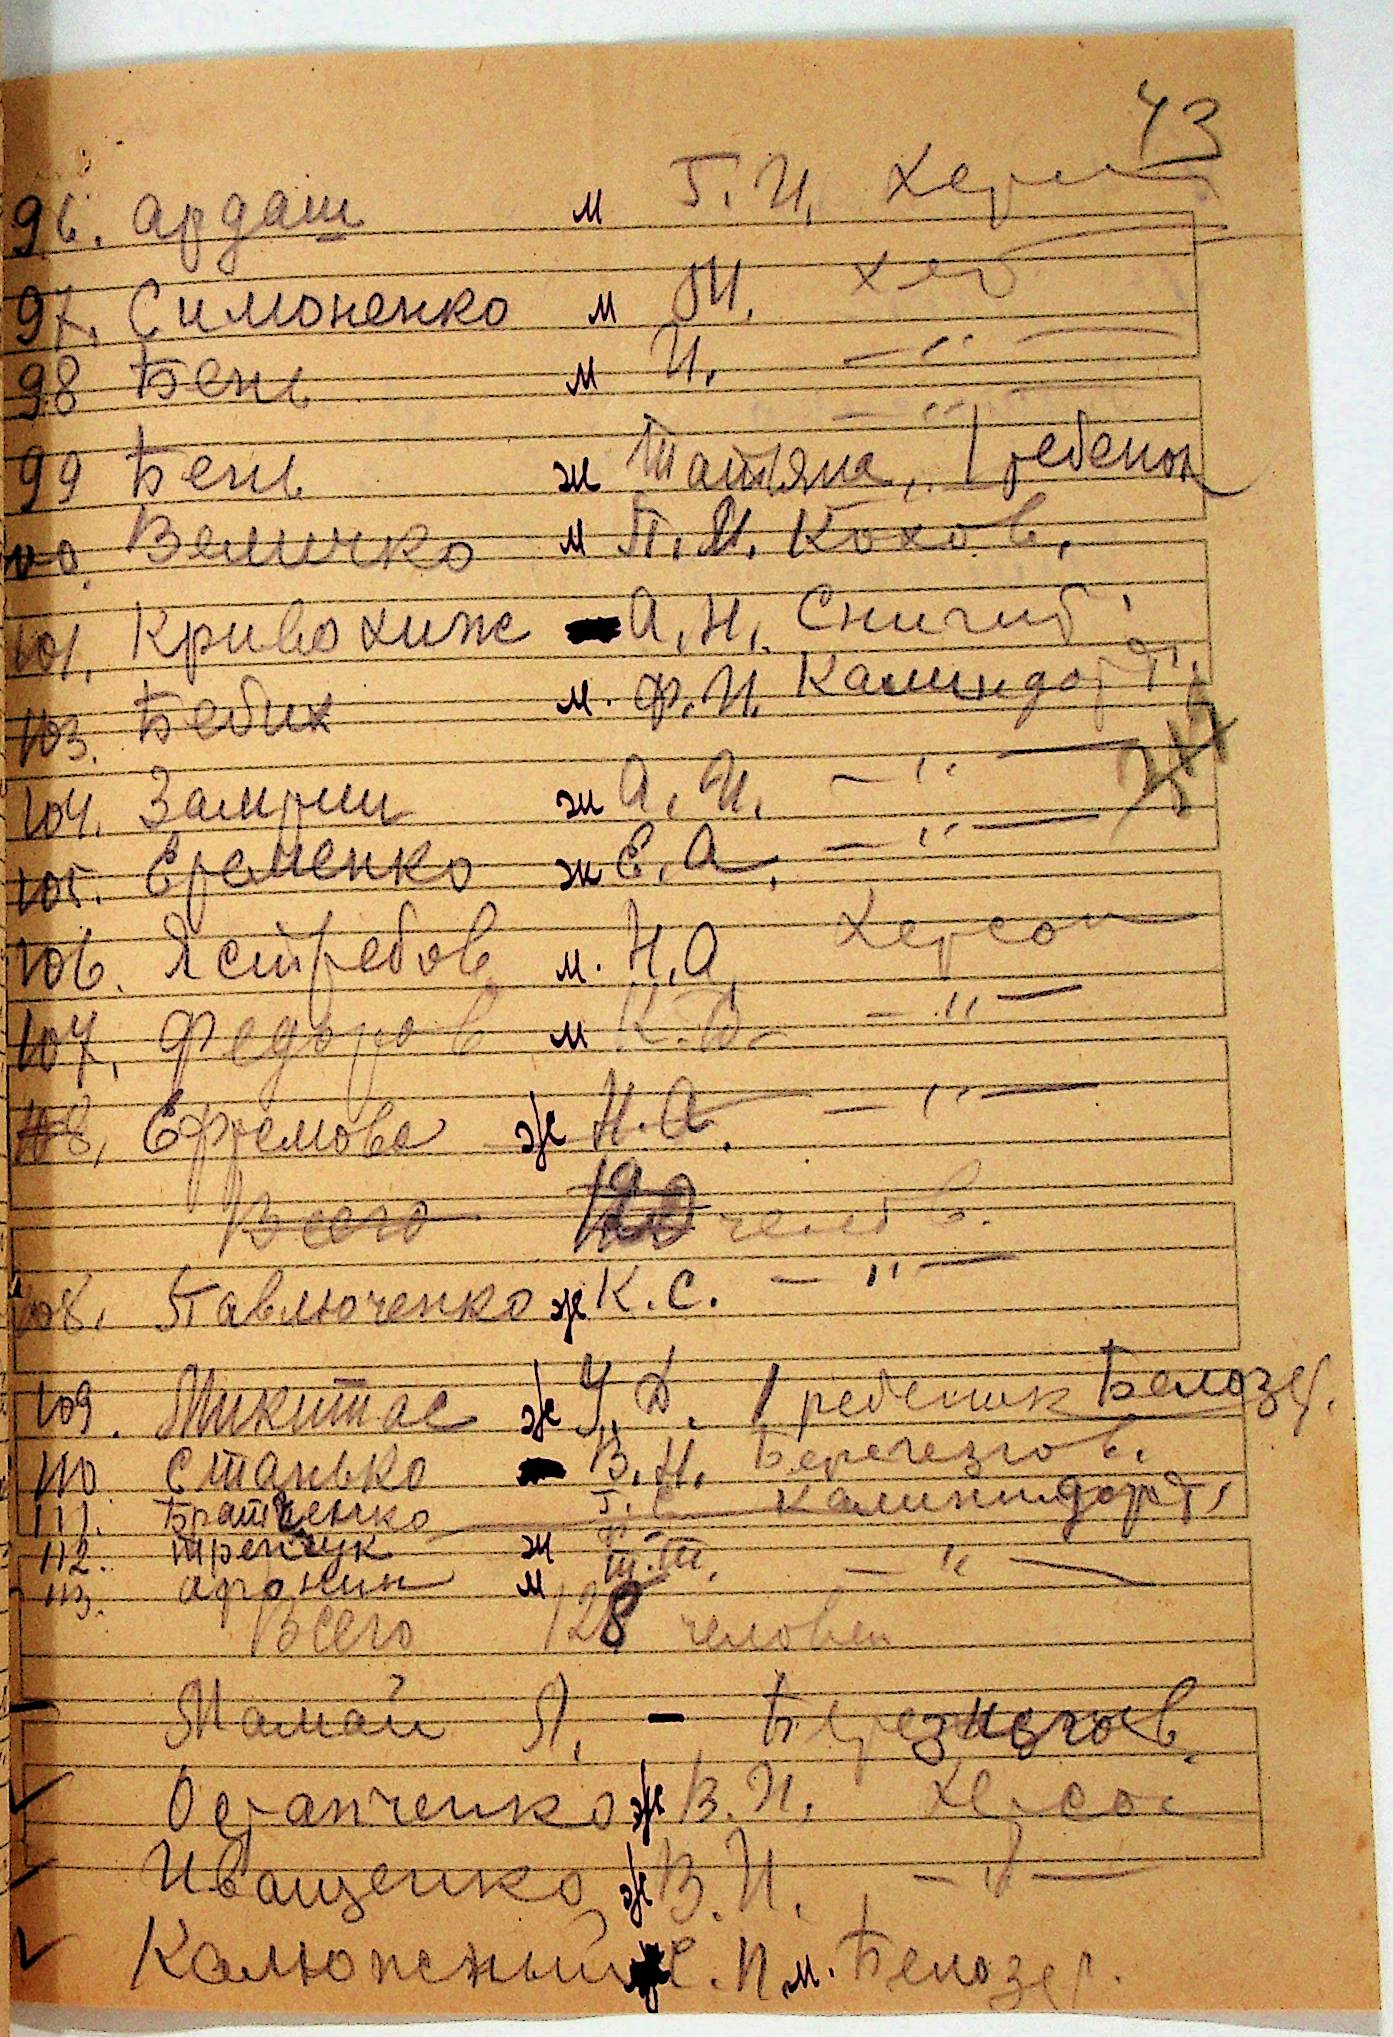 43
96. Ардаш м Г. И. Херсон
97. Симоненко м И. Хер
98 Бень м И. — " —
99 Бень ж Татяна, 1 ребенок — " —
100. Величко м П. И. Кохов.
101. Кривохиж А. Н. Снигиб
103. Бебих м. Ф. И. Калиндорт,
104. Замрии ж А. И. — " —
105. Еременко ж Е. А. — " —
106. Ястребов м. Н. А. Херсон
107. Федоров м К. — " —
108. Ефремова ж Н. А. — " —
Всего челов.
108. Павлюченко ж К. С. — " —
109. Микитас ж У. Д. 1 ребеник Белозер.
110 Станько В. Н. Беречезгов.
111. Братченко Г. Калининдорт
112. Трепчук ж
113. Аронин м Ш. Ш. — " —
Всего 128 человек
Мамай Л. — Березнеговв.
Остапченко ж В. И. Херсон
Иващенко ж В. И. — " —
Калюжный С. П. м. Белозер.